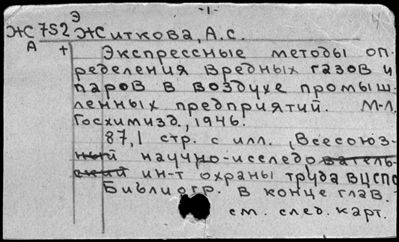 -1-
Э
4
ЖС 752 Житкова, А.С.
А +
Экспрессные методы оп-
ределения вредных газов и
паров в воздухе промыш-
ленных предприятий. М-Л.
Госхимизд., 1946.
87,1 стр. с илл. (Всесоюз-
ный научно-исследо ватель-
ский ин-т охраны труда ВЦСПС
Библиогр. в конце глав.
см. след. карт.